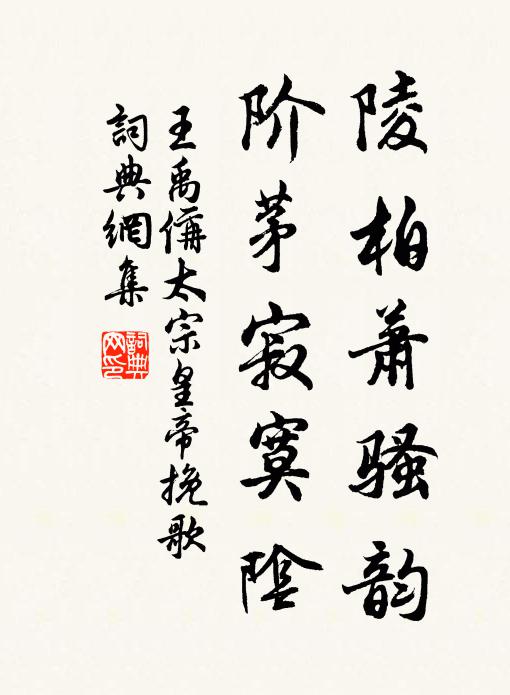 陵柏萧骚韵
阶茅寂寞陰
王禹偁太宗皇帝挽歌
詞典網集
詞典
网印